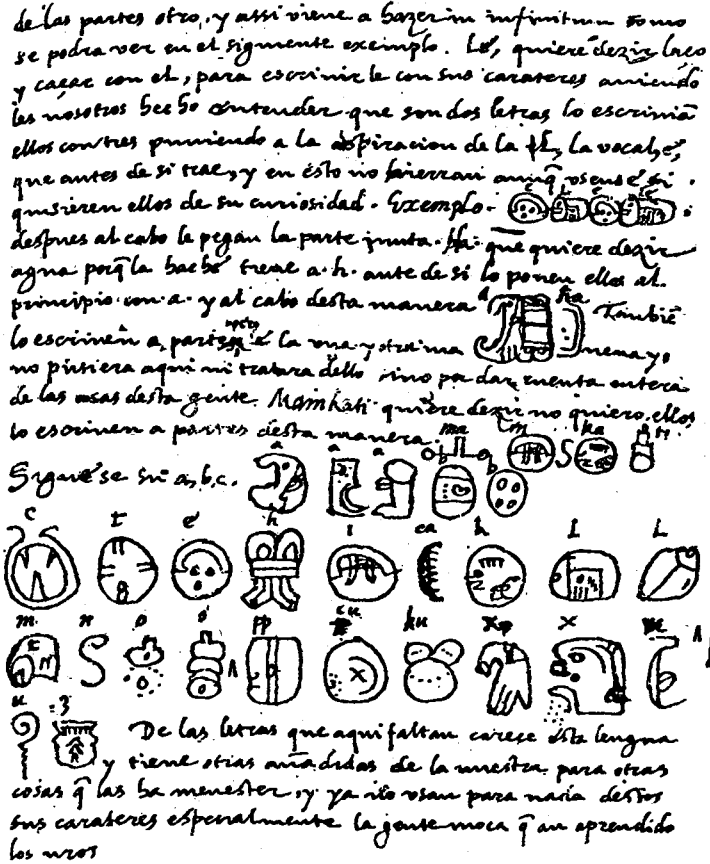 de las partes otro, y assi viene a hazer in infinitum como
se podra ver en el siguiente exemplo. Lé, quiere dezir laço
y caçar con el, para escrivir le con sus carateres aviendo
les nosotros hecho entender que son dos letras lo escrivian
ellos con tres puniendo a la aspiracion de la l, la vocal, é,
que antes de si trae, y en esto no hierran aunq usense si
quisieren ellos de su curiosidad. Exemplo.
despues al cabo le pegan la parte junta. Ha. que quiere dezir
agua porq la hache tiene a.h. ante de si lo ponen ellos al
principio con a. y al cabo desta manera a ha Tambiē
lo escriven a partes la una y otra ma nera yo
no pusiera aqui ni tratara dello sino por dar cuenta entera
de las cosas desta gente. Mainkati quiere dezir no quiero, ellos
lo escriven a partes desta manera. ma i n ka ti
Siguese su a, b, c. a a a b b
c t é h i ca k l l
m n o o pp cu ku x x u
u z De las letras que aqui faltan carece esta lengua
y tiene otras añadidas de la nuestra para otras
cosas q̄ las ha menester, y ya no usan para nada destos
sus carateres especialmente la gente moça q̄ an aprendido
los nros